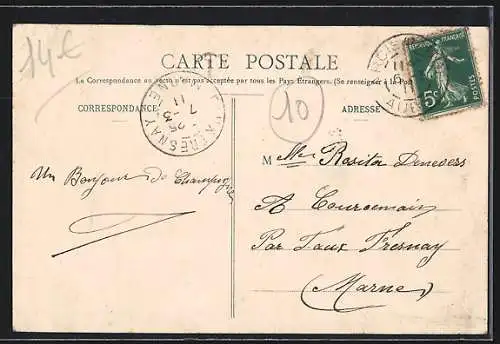 14€
CARTE POSTALE
La Correspondance au recto n'est pas acceptée par tous les Pays Étrangers. (Se renseigner à la Poste
CORRESPONDANCE
ADRESSE
10
RÉPUBLIQUE FRANÇAISE
5c
POSTES
FRESNAY
7-3
11
Un Bonjour de Champagne
Melle Rosita Denevers
A Courcemain
Par Faux Fresnay
(Marne)